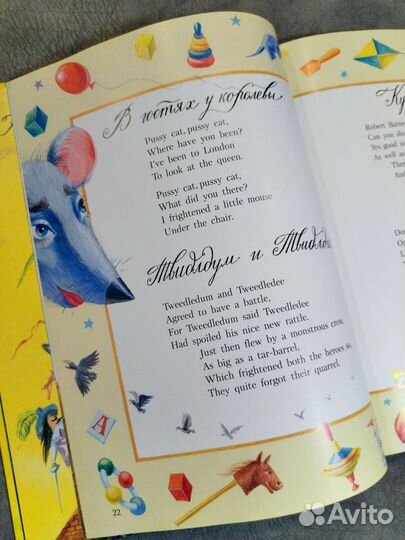 В гостях у королевы
Pussy cat, pussy cat,
Where have you been?
I've been to London
To look at the queen.
Pussy cat, pussy cat,
What did you there?
I frightened a little mouse
Under the chair.
Твидлдум и
Tweedledum and Tweedledee
Agreed to have a battle,
For Tweedledum said Tweedledee
Had spoiled his nice new rattle.
Just then flew by a monstrous crow,
As big as a tar-barrel,
Which frightened both the heroes so,
They quite forgot their quarrel.
А
22
Robert
Can you
Yes, good
As well
Avito